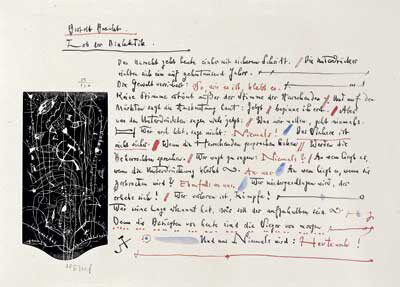 Bertolt Brecht
Lob der Dialektik
Das Unrecht geht heute einher mit sicherem Schritt. / Die Unterdrücker
richten sich ein auf zehntausend Jahre.
Die Gewalt versichert: So, wie es ist, bleibt es. /
Keine Stimme ertönt außer der Stimme der Herrschenden / Und auf den
Märkten sagt die Ausbeutung laut: Jetzt / beginne ich erst. / Aber
von den Unterdrückten sagen viele jetzt: / Was wir wollen, geht niemals.
Wer noch lebt, sage nicht: Niemals! Das Sichere ist
nicht sicher. Wenn die Herrschenden gesprochen haben / Werden die
Beherrschten sprechen. / Wer wagt zu sagen: Niemals? / An wem liegt es,
wenn die Unterdrückung bleibt An uns. An wem liegt es, wenn sie
zerbrochen wird? Ebenfalls an uns. Wer niedergeschlagen wird, der
erhebe sich! / Wer verloren ist, kämpfe!
Wer seine Lage erkannt hat, wie soll der aufzuhalten sein
Denn die Besiegten von heute sind die Sieger von morgen
Und aus Niemals wird: Heute noch!